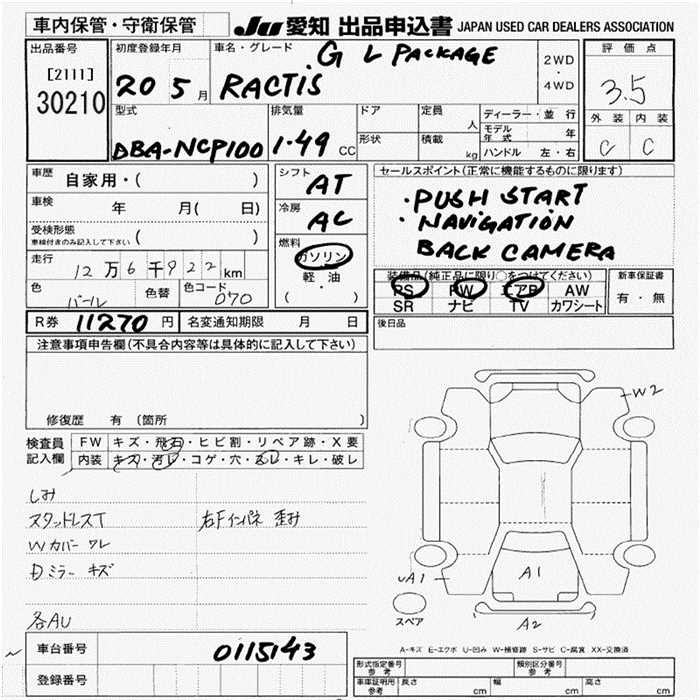 車内保管・守衛保管
JU 愛知 出品申込書 JAPAN USED CAR DEALERS ASSOCIATION
出品番号
[2111]
30210
初度登録年月
20 5月
車名・グレード
G L PACKAGE
RACTIS
2WD
・
4WD
評価点
3.5
外装 内装
C C
型式
DBA-NCP100
排気量
1.49 CC
ドア
形状
定員
人
積載
kg
ディーラー・並行
モデル年式 年
ハンドル 左・右
車歴 自家用・( )
車検 年 月( 日)
受検形態
車検付きのみ記入して下さい ( )
走行 12万6千922km
色 パール 色替 色コード 070
シフト
AT
冷房
AC
燃料
ガソリン
軽・油
・
( )
セールスポイント(正常に機能するものに限ります)
・PUSH START
・NAVIGATION
BACK CAMERA
装備品(純正品に限り○をつけてください)
PS PW エアB AW
SR ナビ TV カワシート
新車保証書
有・無
R券 11270円 名変通知期限 月 日
後日品
注意事項申告欄(不具合内容等は具体的に記入して下さい)
修復歴 有 (箇所 )
検査員
記入欄
FW キズ・飛石・ヒビ割・リペア跡・X要
内装 キズ・汚レ・コゲ・穴・スレ・キレ・破レ
しみ
スタッドレスT 右Fインパネ 歪み
Wカバー ワレ
Dミラー キズ
各AU
W2
UA1
A1
A2
スペア
A-キズ E-エクボ U-凹み W-補修跡 S-サビ C-腐食 XX-交換済
車台番号 0115143
登録番号
形式指定番号
参考
類別区分番号
参考
車庫証明用
参考
長さ cm 幅 cm 高さ cm